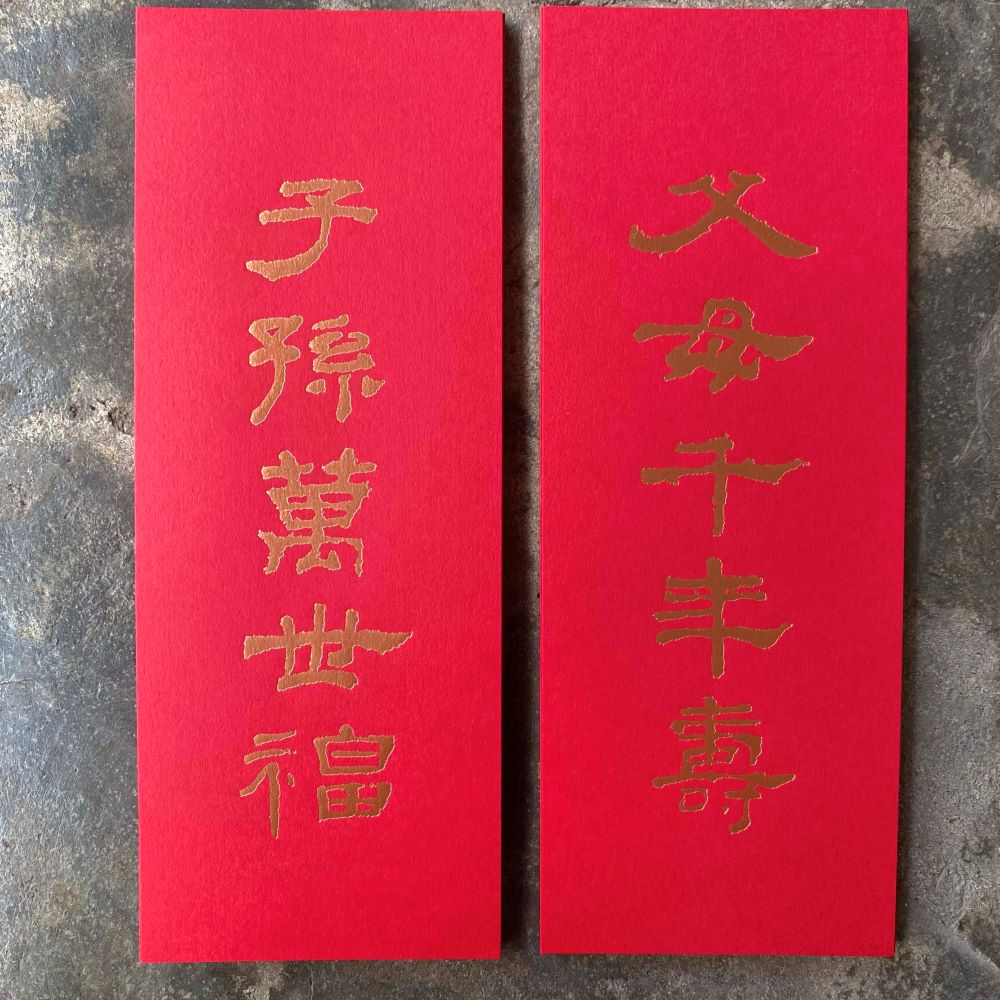 父母千年壽
子孫萬世福